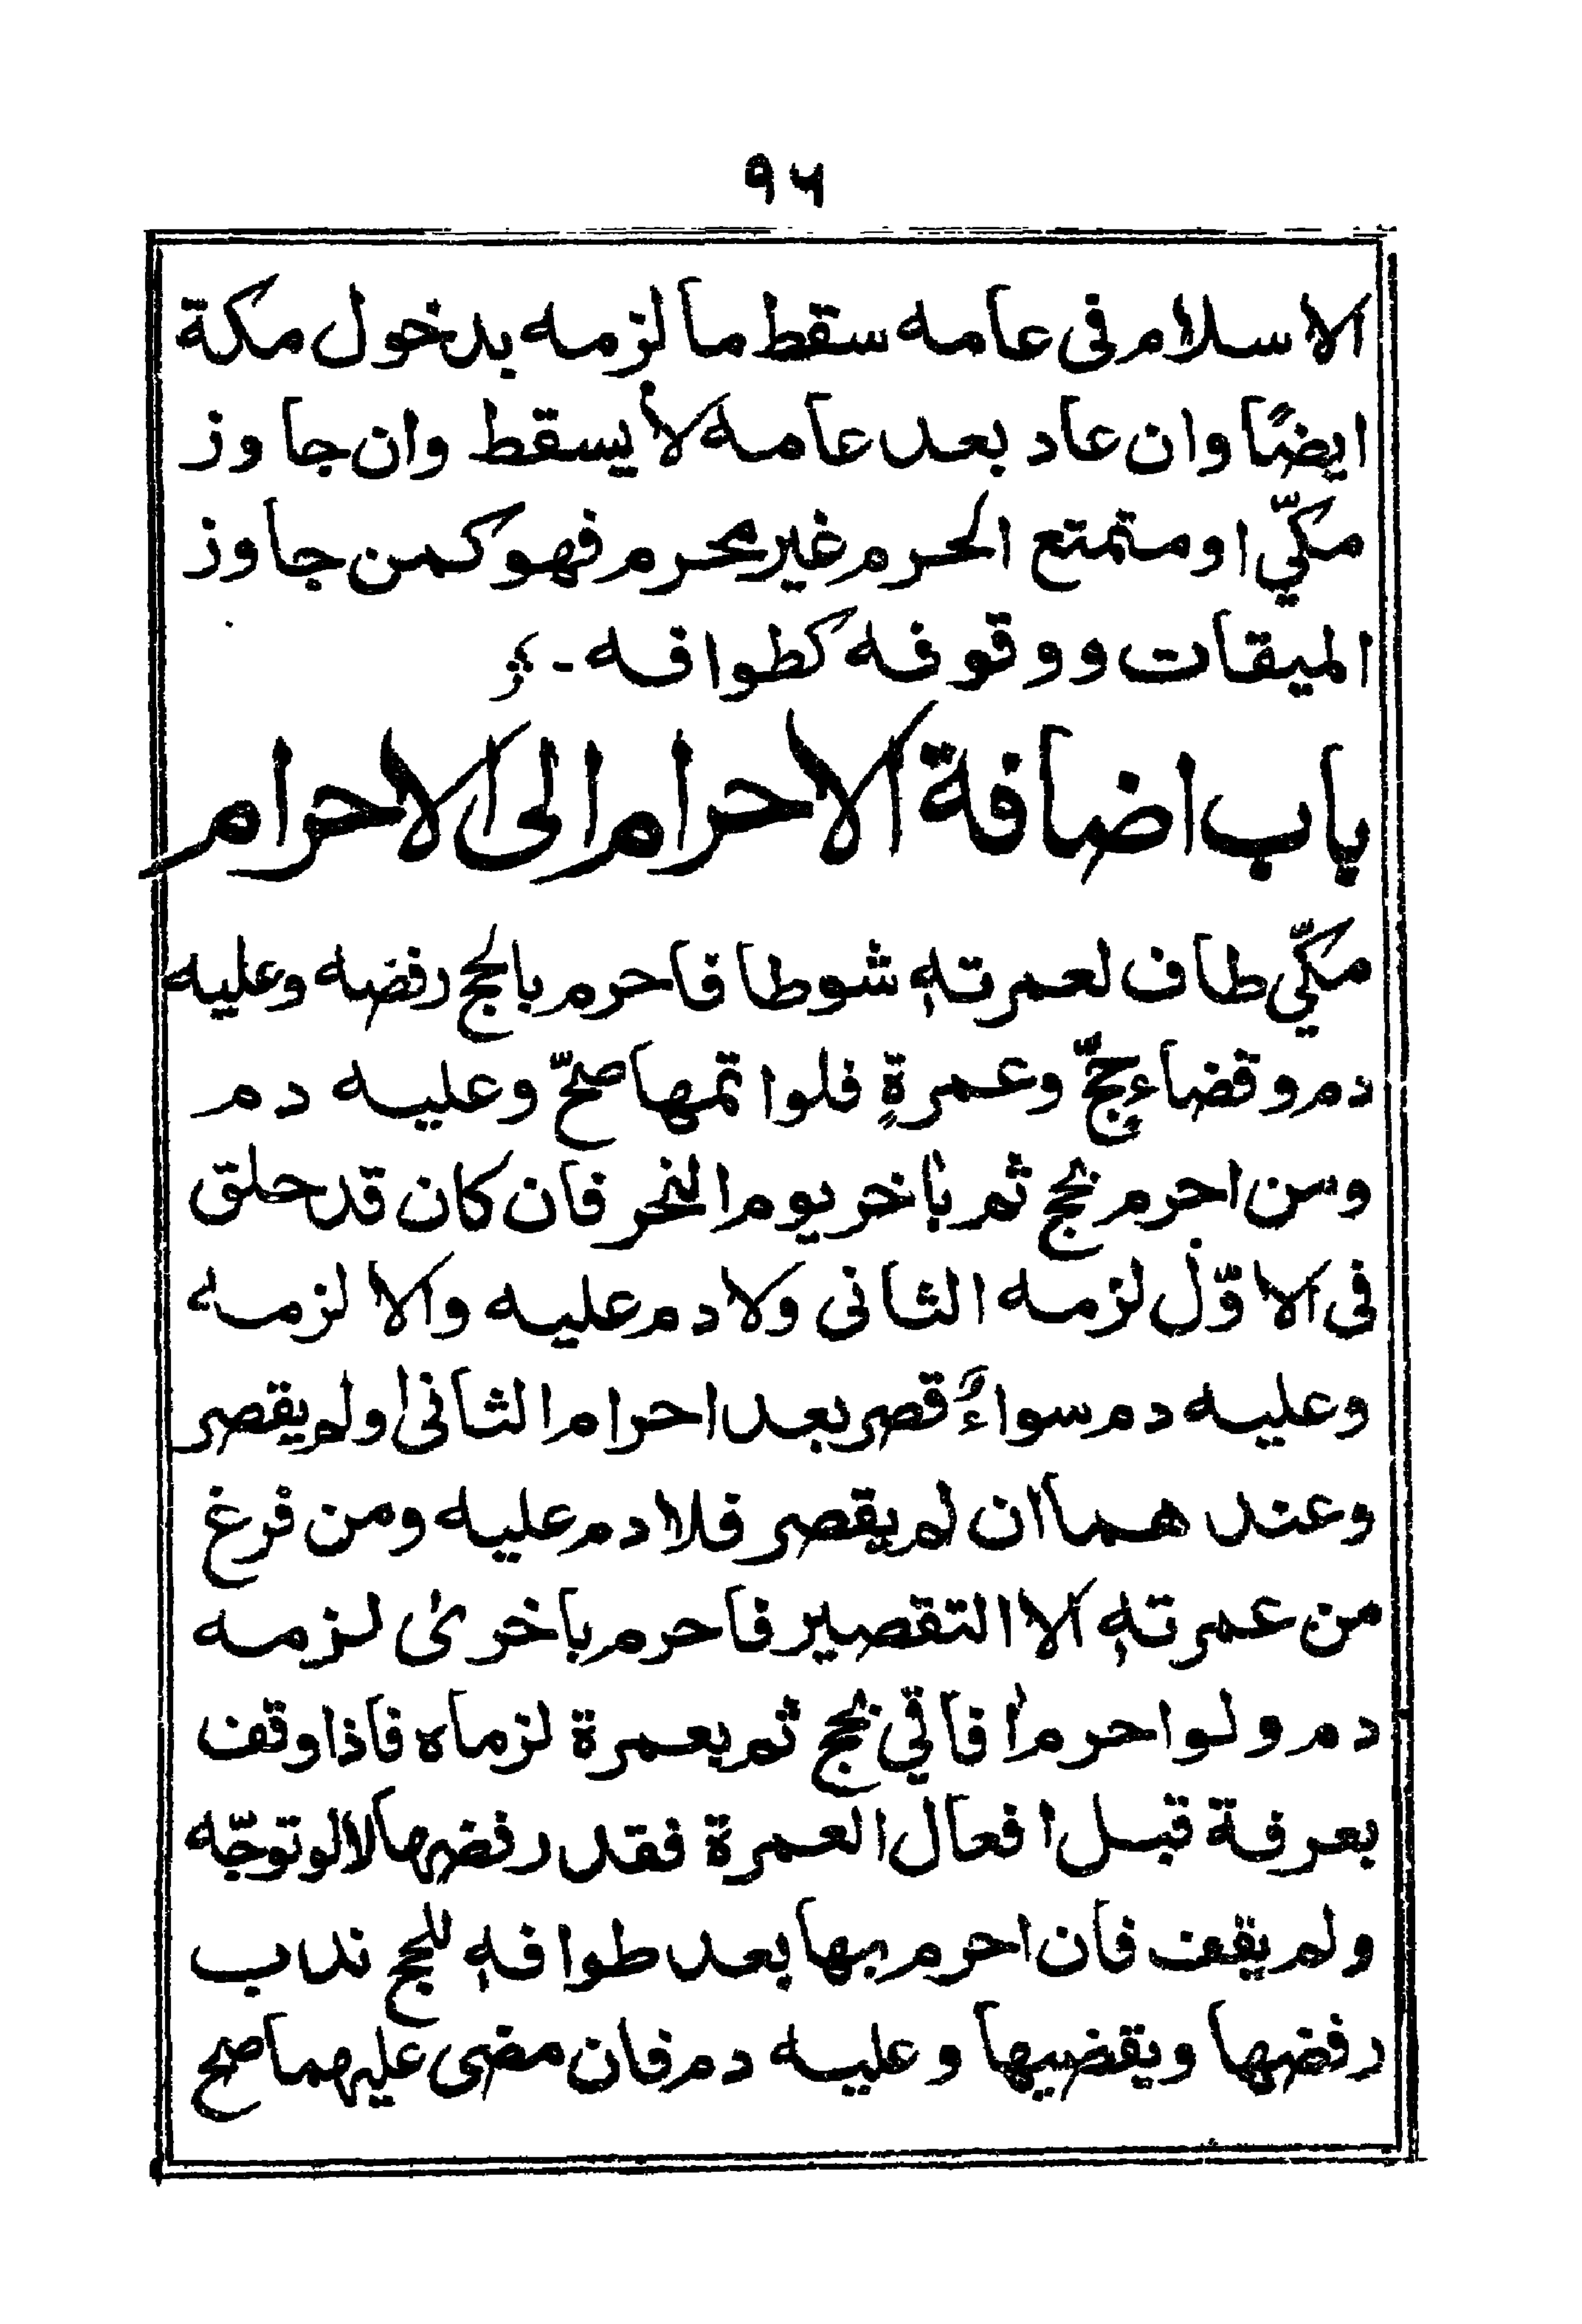 ٩٦
الاسلام فى عامه سقط ما لزمه بدخول مكة
ايضًا وان عاد بعد عامه لا يسقط وان جاوز
مكّي او متمتع الحرم غير محرم فهو كمن جاوز
الميقات ووقوفه كطوافه -
باب اضافة الاحرام الى الاحرام
مكّي طاف لعمرتهٖ شوطا فاحرم بالحج رفضه وعليه
دم وقضاء حجٍّ وعمرةٍ فلو اتمها صحّ وعليه دم
ومن احرم بحج ثم بٰاخر يوم النحر فان كان قد حلق
فى الاوّل لزمه الثانى ولا دم عليه والا لزمه
وعليه دم سواءٌ قصر بعد احرام الثانى او لم يقصر
وعندهما ان لم يقصر فلا دم عليه ومن فرغ
من عمرتهٖ الا التقصير فاحرم باخرىٰ لزمه
دم ولو احرم اٰفاقي بحج ثم بعمرة لزماه فاذا وقف
بعرفة قبل افعال العمرة فقد رفضها لا لو توجّه
ولم يقف فان احرم بها بعد طوافهٖ للحج ندب
رفضها ويقضيها وعليه دم فان مضى عليهما صح